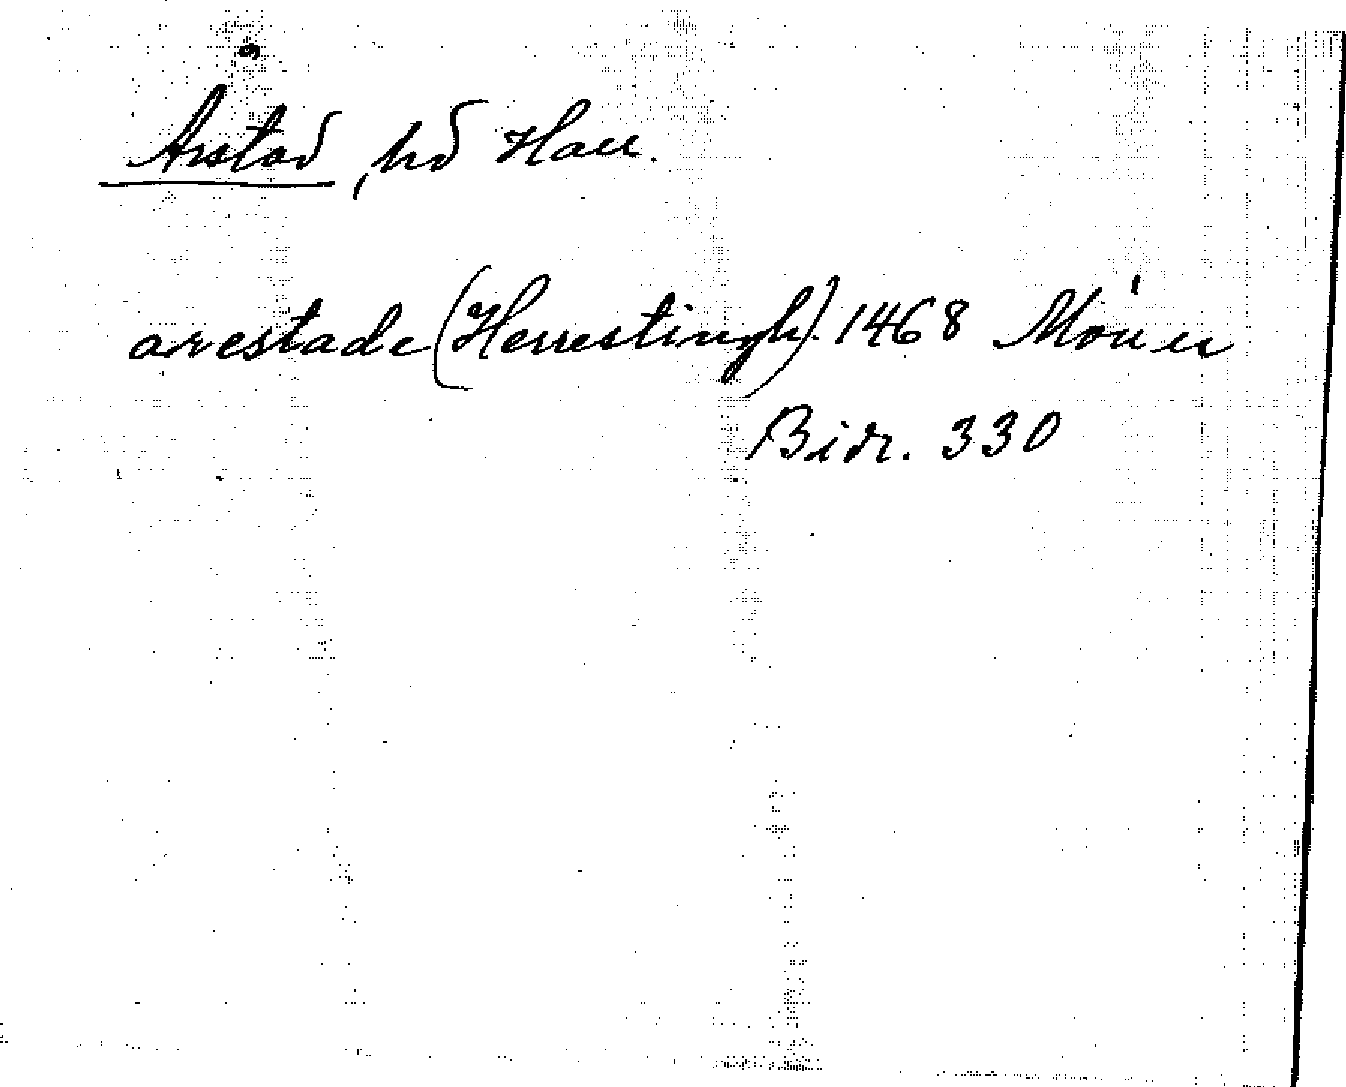 Årstad, hd Hall.
arestade (Herrestingh). 1468 Mörner
Bidr. 330